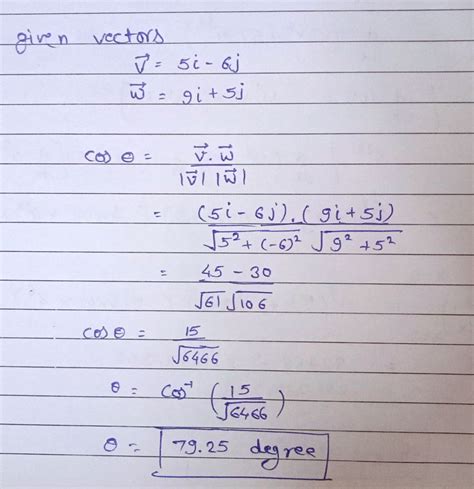 given vectors
v⃗ = 5i - 6j
w⃗ = 9i + 5j
cos θ = v⃗ . w⃗ / |v⃗| |w⃗|
= (5i - 6j) . ( 9i + 5j) / √5² + (-6)² √9² + 5²
= 45 - 30 / √61 √106
cos θ = 15 / √6466
θ = cos⁻¹ ( 15 / √6466 )
θ = 79.25 degree